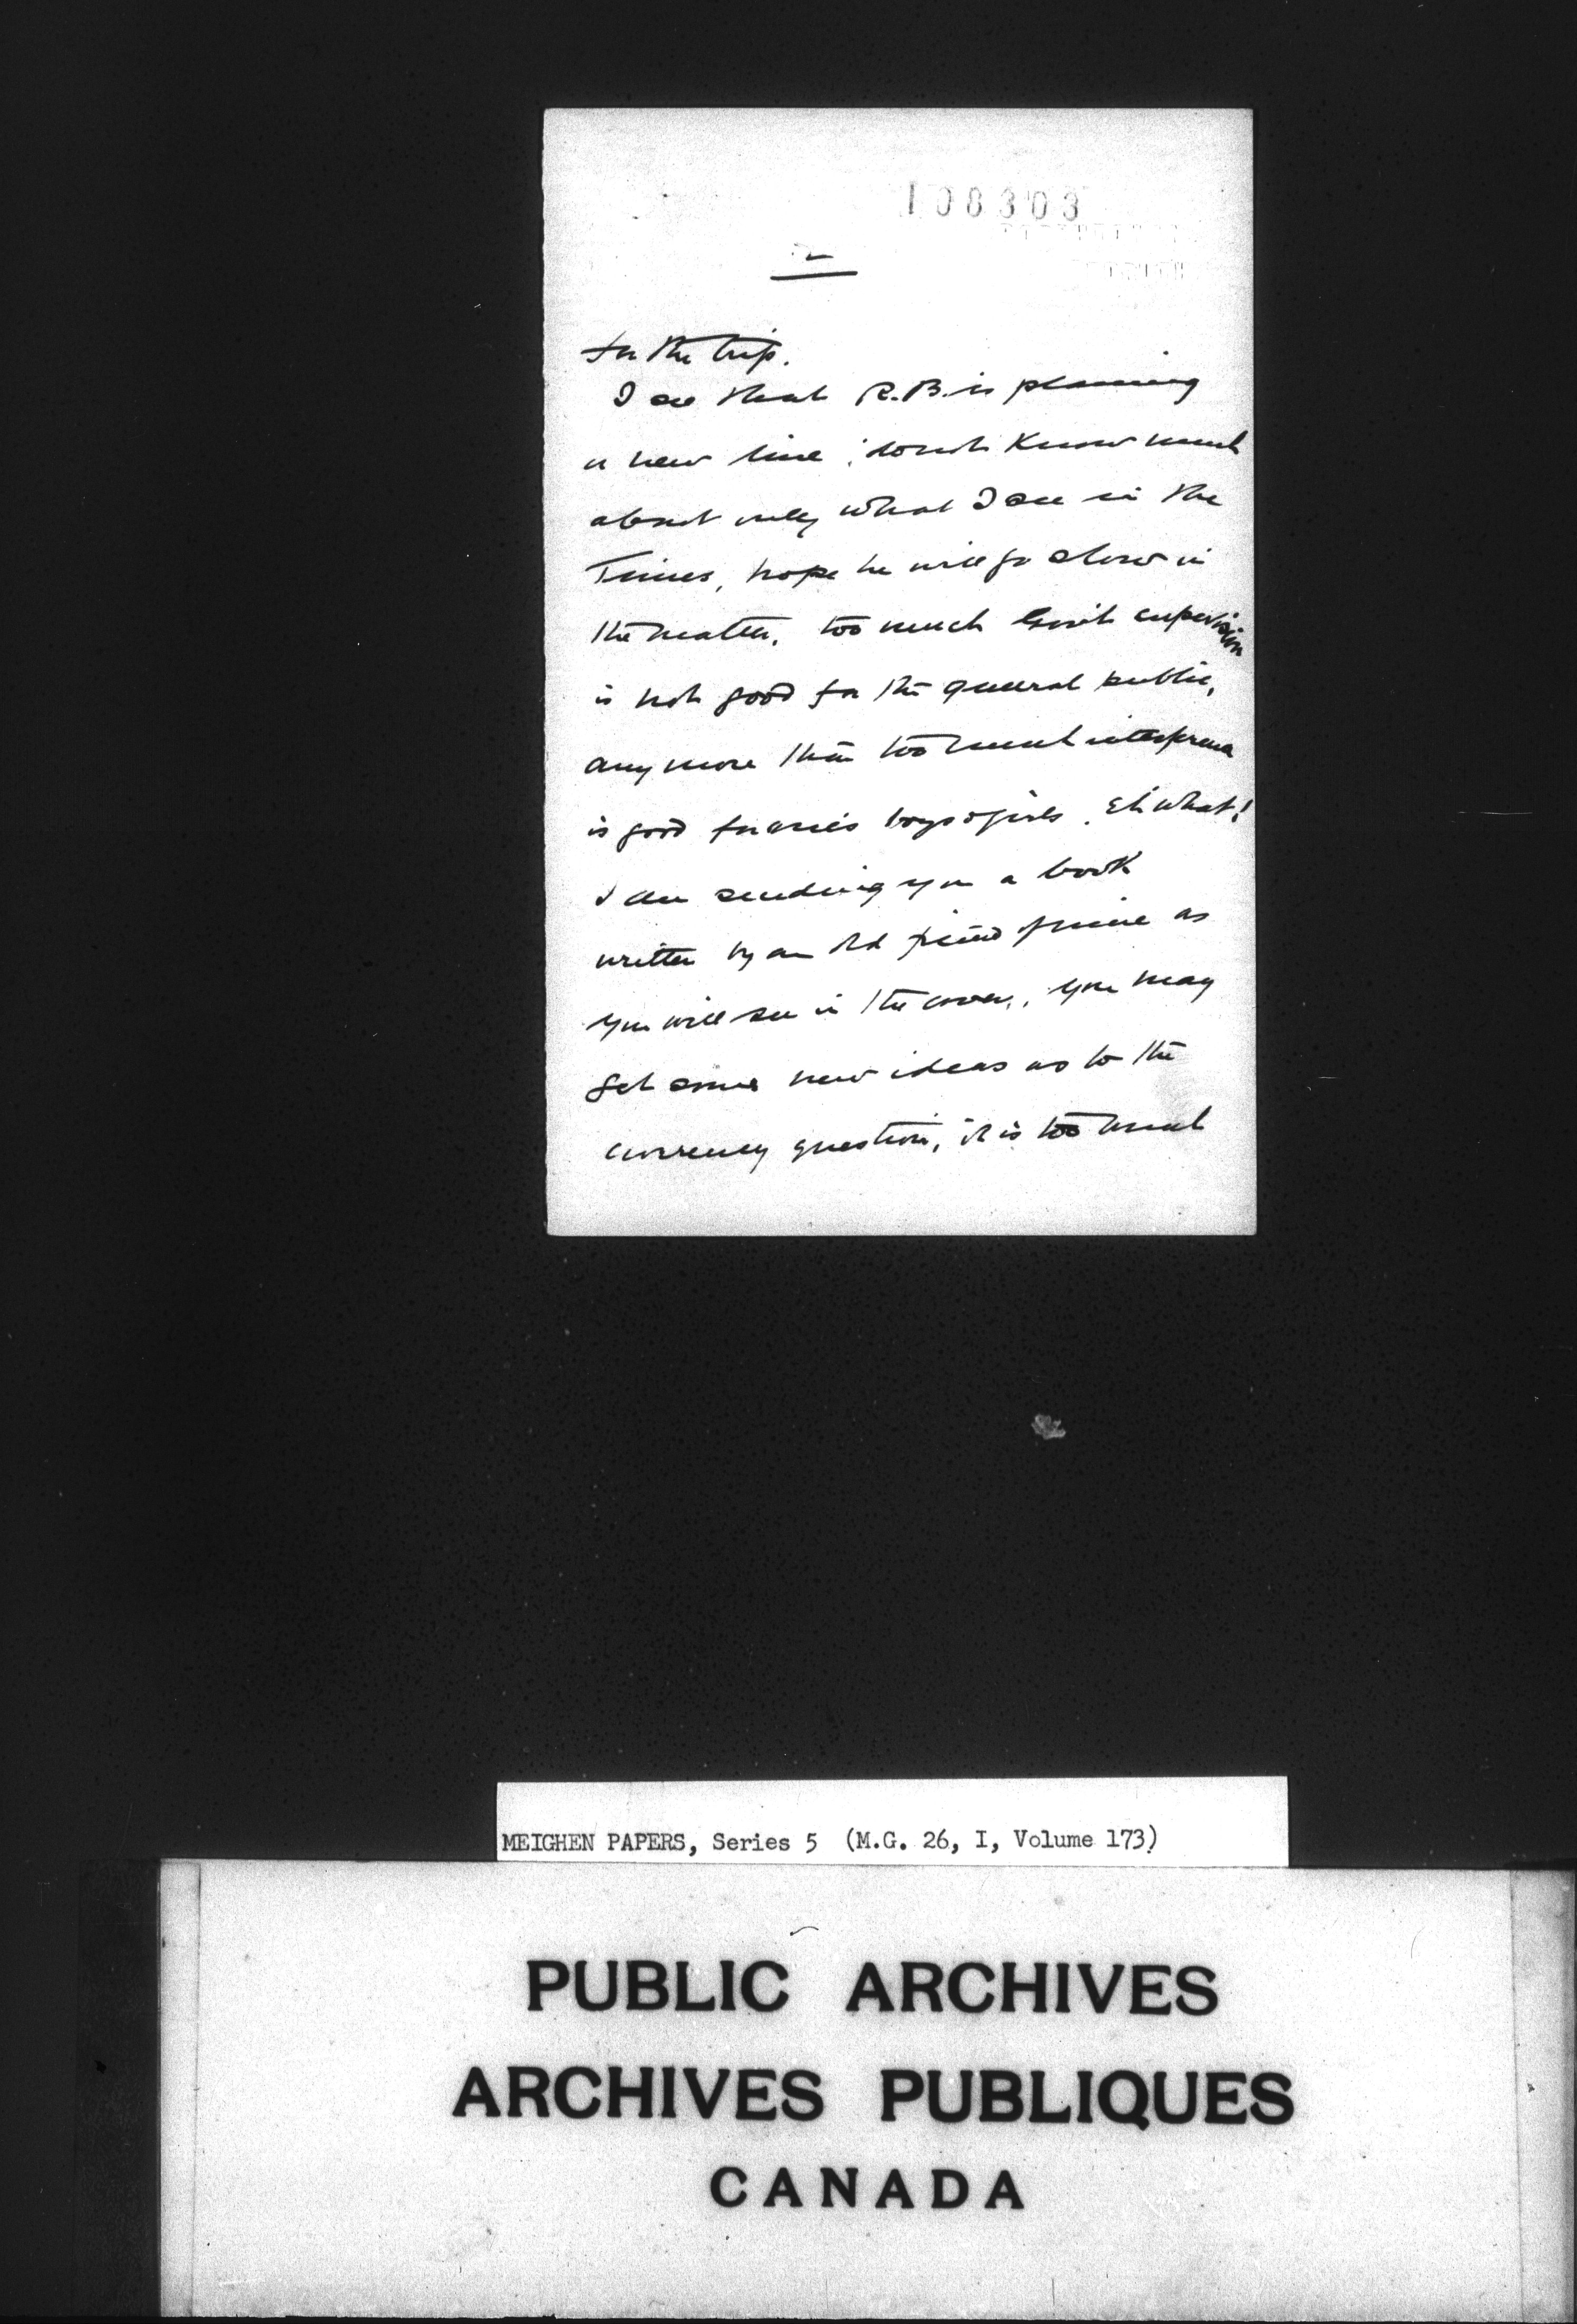 108303
2
for the trip.
I see that R.B. is planning
a new line; don't know much
about only what I see in the
Times, hope he will go slow in
the matter, too much Gov't supervision
is not good for the general public,
any more than too much interference
is good for one's boys & girls. Eh what!
I am sending you a book
written by an old friend of mine as
you will see in the cover, you may
get some new ideas as to the
currency question, it is too much
MEIGHEN PAPERS, Series 5 (M.G. 26, I, Volume 173)
PUBLIC ARCHIVES
ARCHIVES PUBLIQUES
CANADA